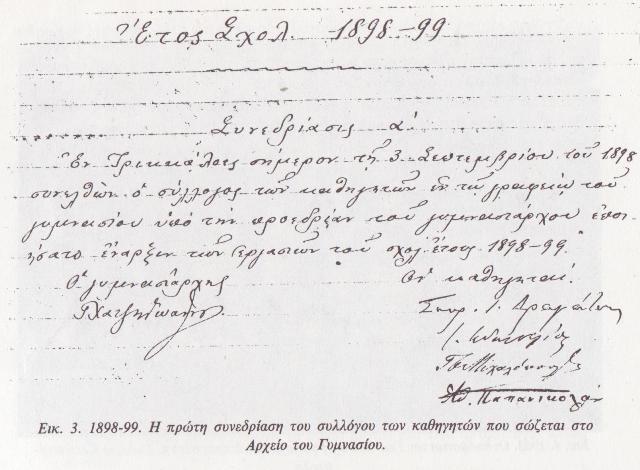 Ἔτος Σχολ. 1898-99
Συνεδρίασις α'.
Ἐν Τρικκάλοις σήμερον τῇ 3 Σεπτεμβρίου τοῦ 1898
συνελθὼν ὁ σύλλογος τῶν καθηγητῶν ἐν τῷ γραφείῳ τοῦ
γυμνασίου ὑπὸ τὴν προεδρίαν τοῦ γυμνασιάρχου ἐποι-
ήσατο ἔναρξιν τῶν ἐργασιῶν τοῦ σχολ. ἔτους 1898-99.
Ὁ γυμνασιάρχης
Οἱ καθηγηταί.
Σπυρ. Ι.
Ι.
Ἀθ. Παπανικολάου
Εικ. 3. 1898-99. Η πρώτη συνεδρίαση του συλλόγου των καθηγητών που σώζεται στο
Αρχείο του Γυμνασίου.